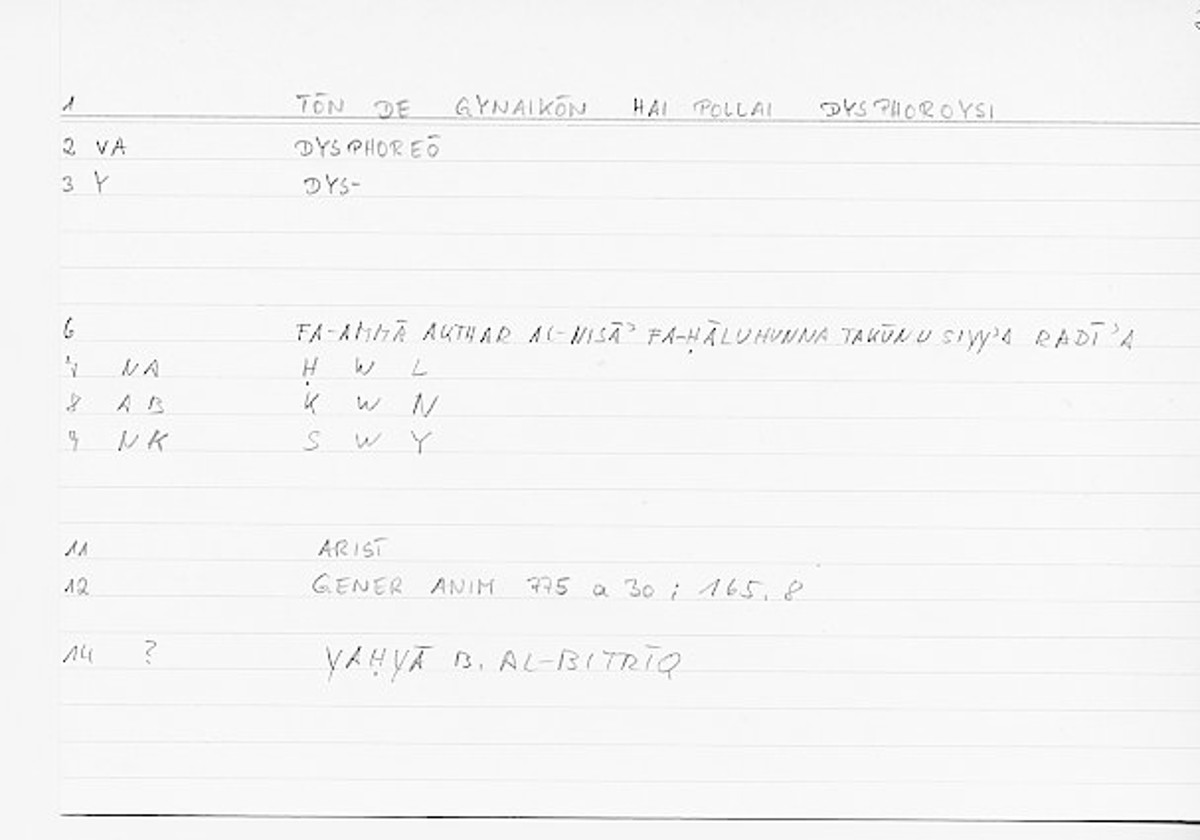 1 TŌN DE GYNAIKŌN HAI POLLAI DYSPHOROYSI
2 VA DYSPHOREŌ
3 Y DYS-
6 FA-AMMĀ AKTHAR AL-NISĀʾ FA-ḤĀLUHUNNA TAKŪNU SIYYʾA RADĪʾA
7 NA Ḥ W L
8 AB K W N
9 NK S W Y
11 ARIST
12 GENER ANIM 775 a 30 ; 165. 8
14 ? YAḤYĀ B. AL-BITRĪQ